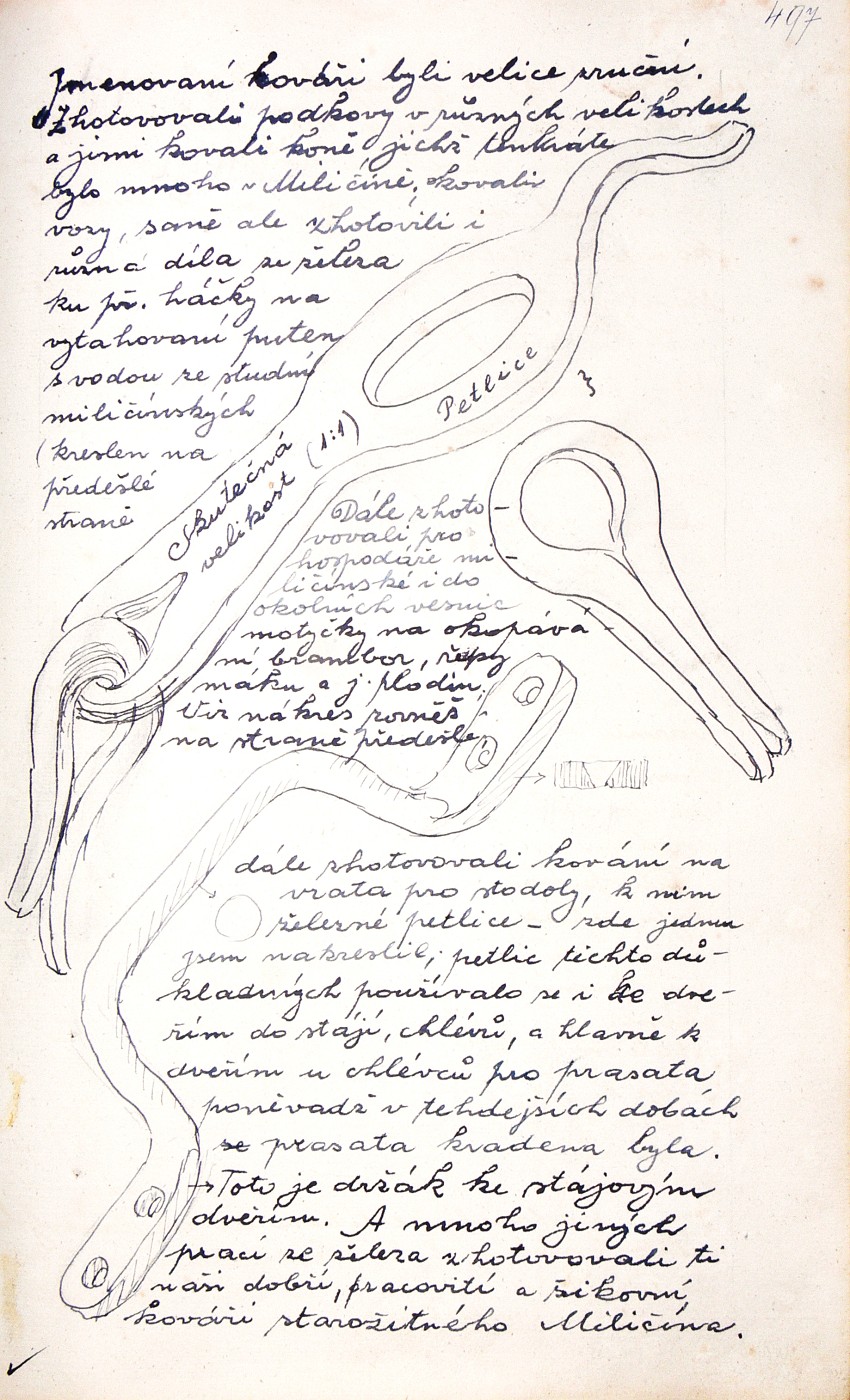 497
Jmenovaní kováři byli velice zruční.
Zhotovovali podkovy v různých velikostech
a jimi kovali koně jichž tenkráte
bylo mnoho v Miličíně, okovali
vozy, saně ale zhotovili i
různá díla ze železa
ku př. háčky na
vytahovaní puten
s vodou ze studní
miličínských
(kreslen na
předešlé
straně
Petlice
Skutečná
velikost (1:1)
Dále zhoto-
vovali pro
hospodáře mi-
ličínské i do
okolních vesnic
motyčky na okopává-
ní brambor, řepy
máku a j. plodin.
Viz nákres rovněš
na straně předešlé
dále zhotovovali kování na
vrata pro stodoly, k nim
železné petlice - zde jednu
jsem nakreslil; petlic těchto dů-
kladných používalo se i ke dve-
řím do stájí, chlévů, a hlavně k
dveřím u chlévců pro prasata
poněvadž v tehdejších dobách
se prasata kradena byla.
→Toto je držák ke stájovým
dveřím. A mnoho jiných
prací ze železa zhotovovali ti
naši dobří, pracovití a šikovní
kováři starožitného Miličína.